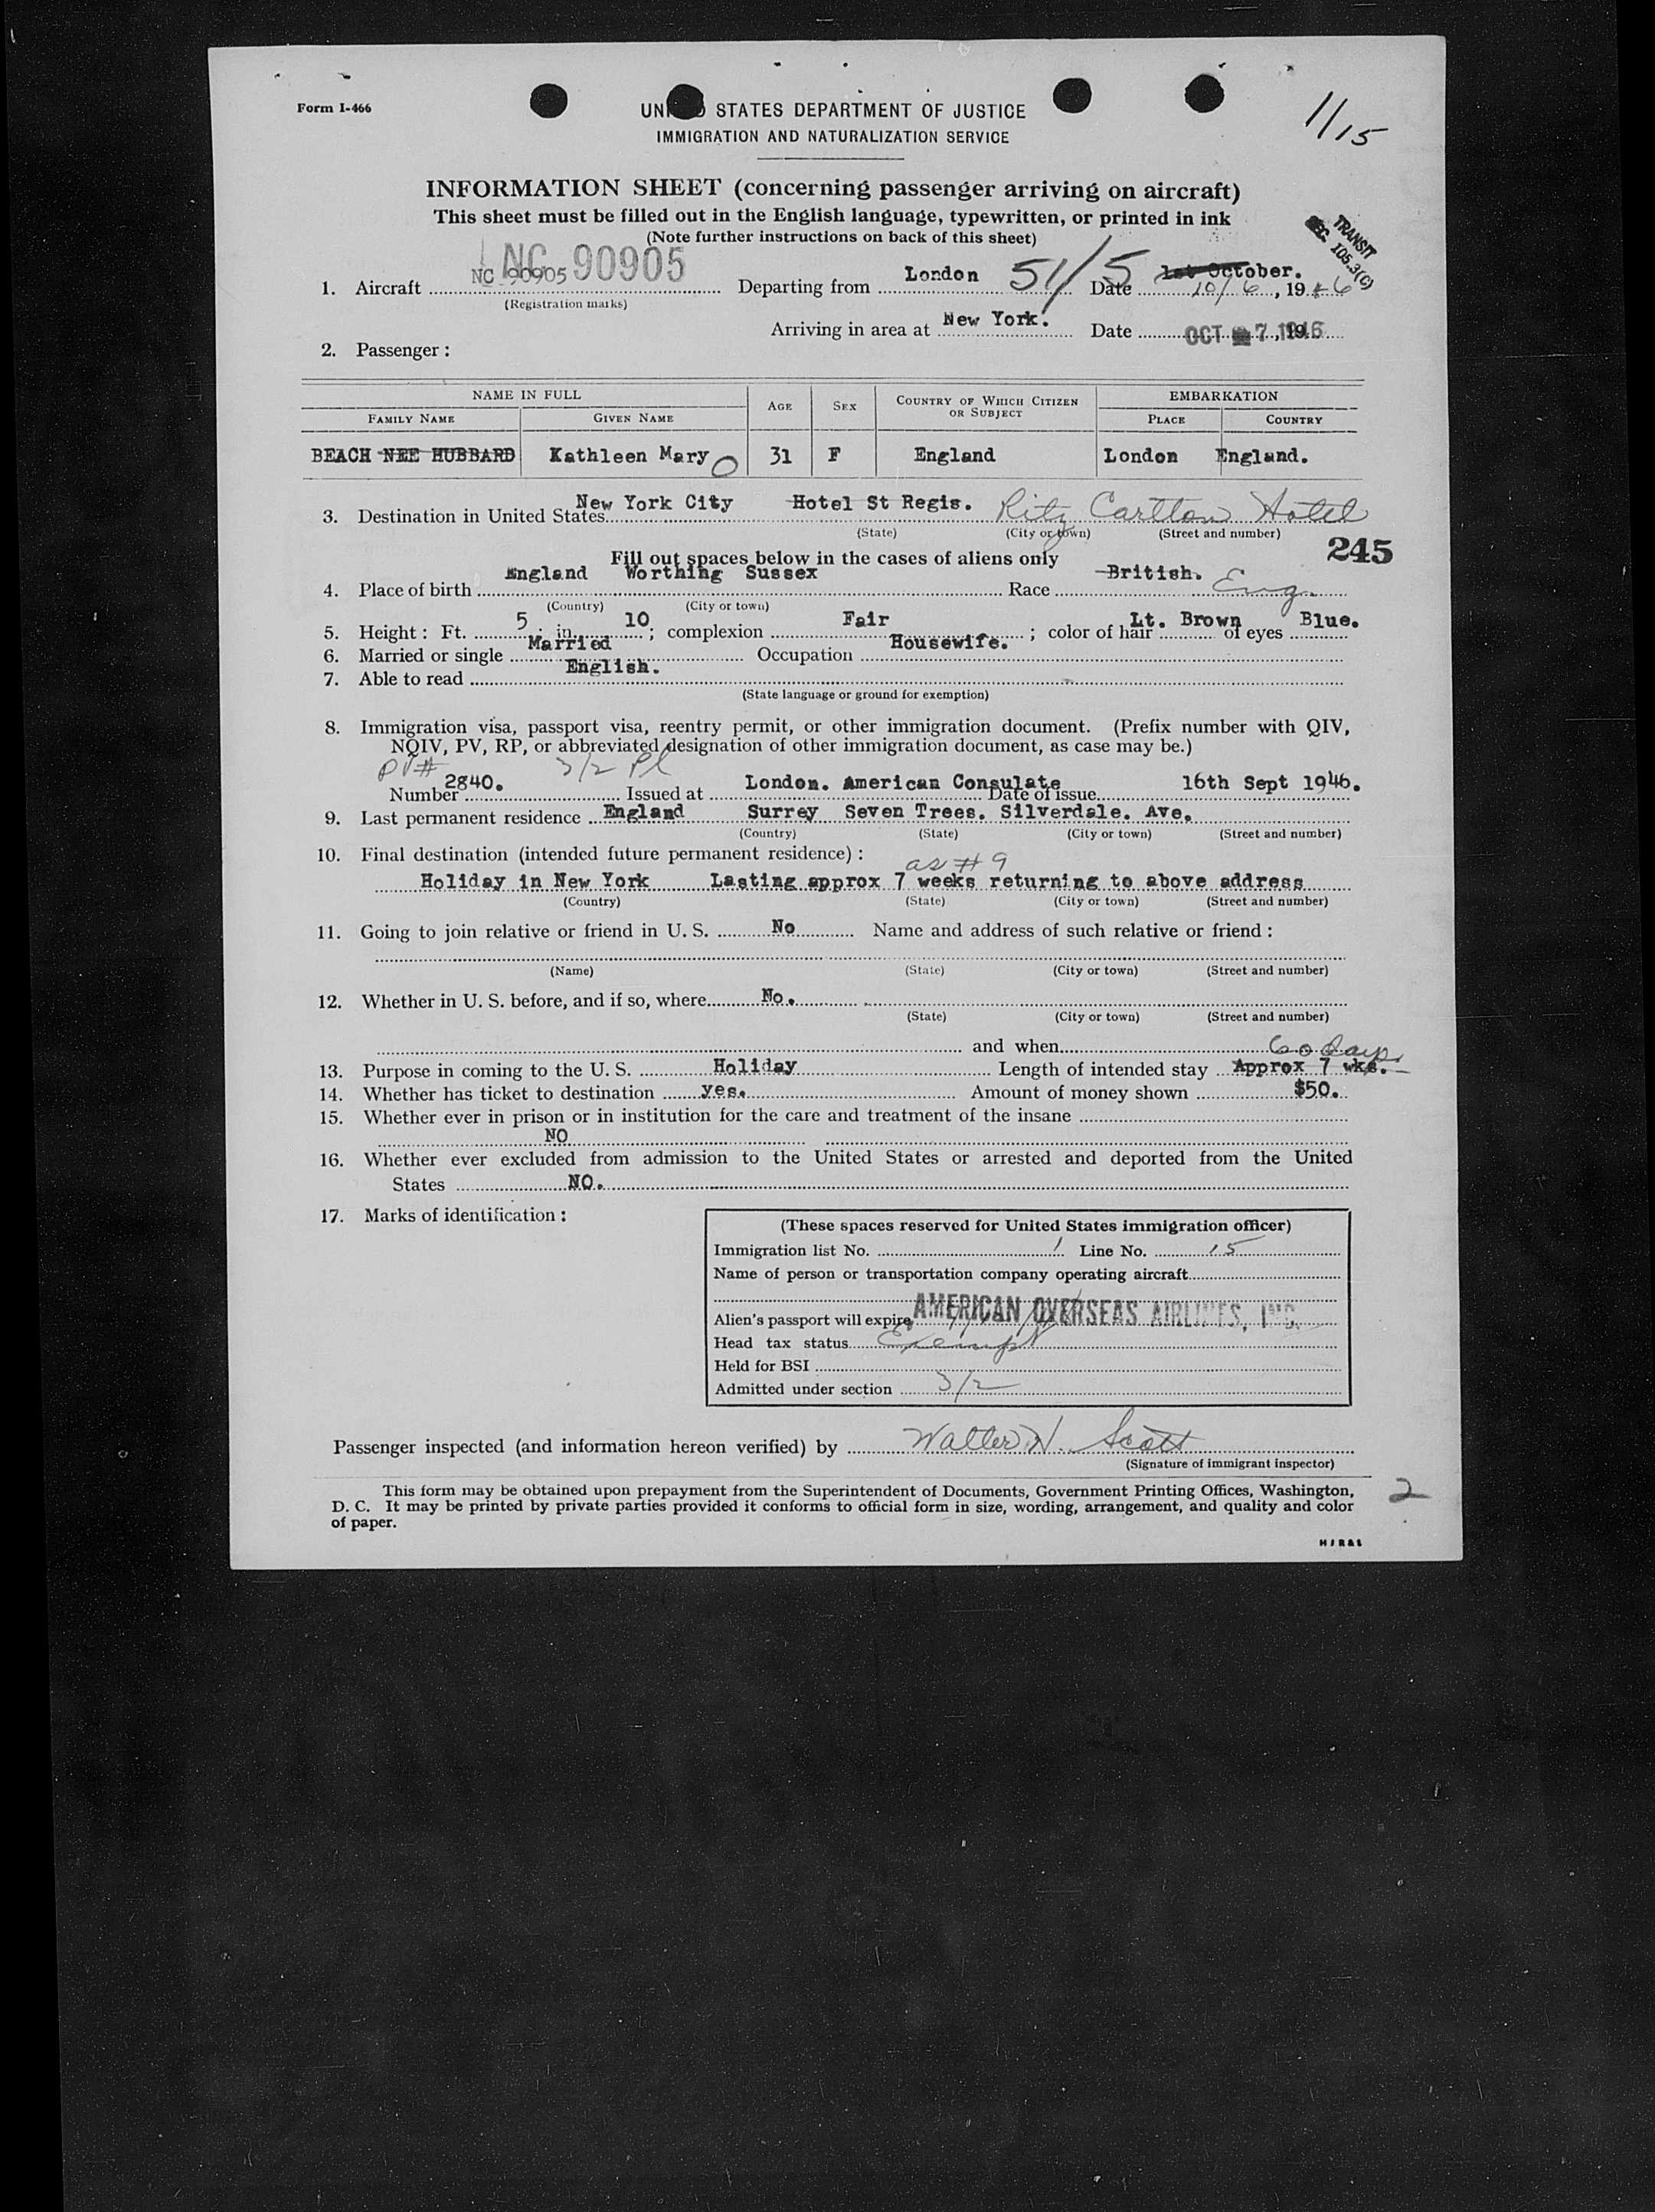 Form I-466
11/15
UN D STATES DEPARTMENT OF JUSTICE
IMMIGRATION AND NATURALIZATION SERVICE
INFORMATION SHEET (concerning passenger arriving on aircraft)
This sheet must be filled out in the English language, typewritten, or printed in ink
(Note further instructions on back of this sheet)
TRANSIT
SEC. 105.3(C)
NC 90905
1. Aircraft NC 90905 Departing from London 51/5 Date 1st October. 10/6, 1946
(Registration marks)
Arriving in area at New York. Date OCT 7, 1946
2. Passenger :
NAME IN FULL AGE SEX COUNTRY OF WHICH CITIZEN OR SUBJECT EMBARKATION
FAMILY NAME GIVEN NAME PLACE COUNTRY
BEACH NEE HUBBARD Kathleen Mary 31 F England London England.
3. Destination in United States New York City Hotel St Regis. Ritz Carlton Hotel
(State) (City or town) (Street and number)
245
Fill out spaces below in the cases of aliens only
4. Place of birth England Worthing Sussex Race British. Eng.
(Country) (City or town)
5. Height : Ft. 5 ; in. 10 ; complexion Fair ; color of hair Lt. Brown of eyes Blue.
6. Married or single Married Occupation Housewife.
7. Able to read English.
(State language or ground for exemption)
8. Immigration visa, passport visa, reentry permit, or other immigration document. (Prefix number with QIV,
NQIV, PV, RP, or abbreviated designation of other immigration document, as case may be.)
PV# 3/2 Pl
Number 2840. Issued at London. American Consulate Date of issue 16th Sept 1946.
9. Last permanent residence England Surrey Seven Trees. Silverdale. Ave.
(Country) (State) (City or town) (Street and number)
10. Final destination (intended future permanent residence) :
as #9
Holiday in New York Lasting approx 7 weeks returning to above address
(Country) (State) (City or town) (Street and number)
11. Going to join relative or friend in U. S. No Name and address of such relative or friend :
(Name) (State) (City or town) (Street and number)
12. Whether in U. S. before, and if so, where No.
(State) (City or town) (Street and number)
and when 60 days
13. Purpose in coming to the U. S. Holiday Length of intended stay Approx 7 wks.
14. Whether has ticket to destination yes. Amount of money shown $50.
15. Whether ever in prison or in institution for the care and treatment of the insane
NO
16. Whether ever excluded from admission to the United States or arrested and deported from the United
States NO.
17. Marks of identification :
(These spaces reserved for United States immigration officer)
Immigration list No. 1 Line No. 15
Name of person or transportation company operating aircraft
AMERICAN OVERSEAS AIRLINES, INC.
Alien's passport will expire
Head tax status Exempt
Held for BSI
Admitted under section 3/2
Passenger inspected (and information hereon verified) by Walter N. Scott
(Signature of immigrant inspector)
This form may be obtained upon prepayment from the Superintendent of Documents, Government Printing Offices, Washington,
D. C. It may be printed by private parties provided it conforms to official form in size, wording, arrangement, and quality and color
of paper.
2